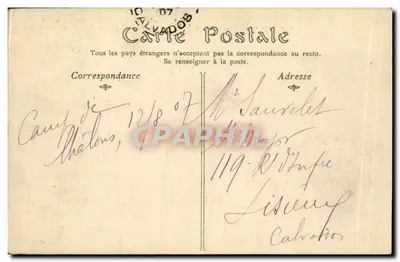 07
CALVADOS
Carte Postale
Tous les pays étrangers n'acceptent pas la correspondance au recto.
Se renseigner à la poste.
Correspondance
Adresse
Camp de
Châlons, 12/8 07
CPAPHIL
Mr
Major
119 - Rt d'Infie
Lisieux
Calvados